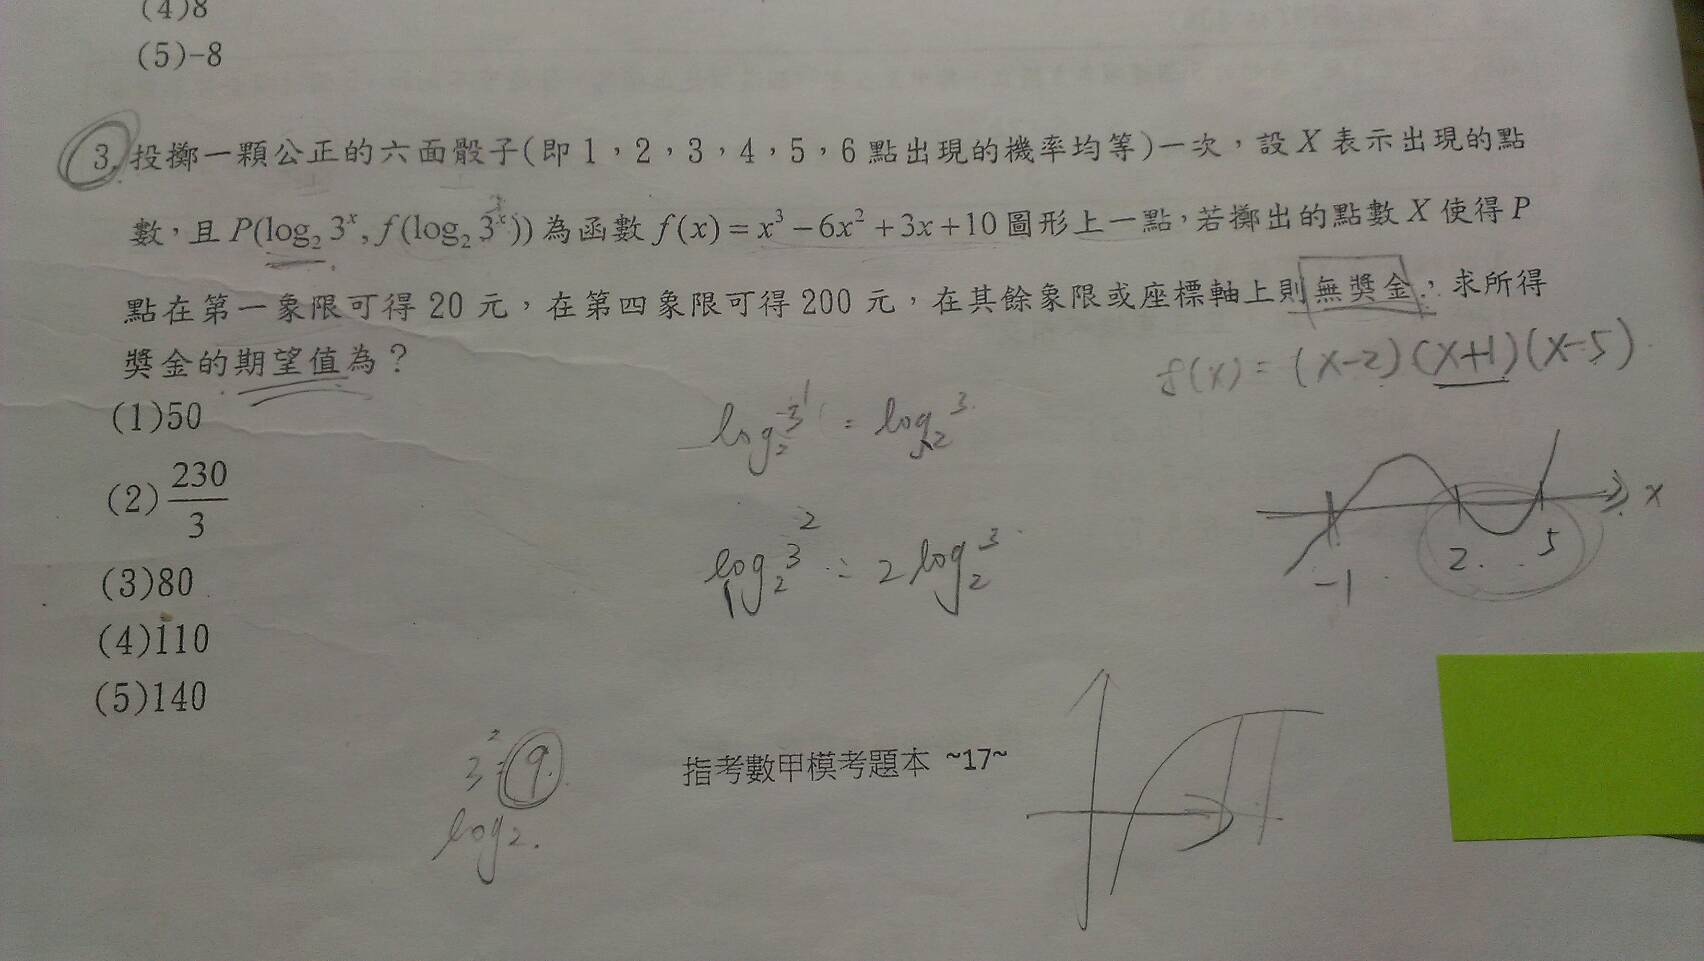 (4)8
(5)-8
3. 投擲一顆公正的六面骰子(即 1，2，3，4，5，6 點出現的機率均等)一次，設 X 表示出現的點
數，且 P(log₂ 3ˣ, f(log₂ 3ˣ)) 為函數 f(x) = x³ − 6x² + 3x + 10 圖形上一點，若擲出的點數 X 使得 P
點在第一象限可得 20 元，在第四象限可得 200 元，在其餘象限或座標軸上則無獎金，求所得
獎金的期望值為？
f(x) = (x-2)(x+1)(x-5)
(1)50
log₂3¹ = log₂3
(2) 230/3
x
-1 2 5
log₂3² = 2log₂3
(3)80
(4)110
(5)140
3² = 9
log₂
指考數甲模考題本 ~17~